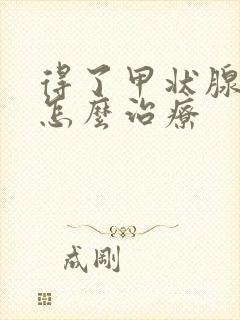 得了甲状腺
怎麼治療
成剛